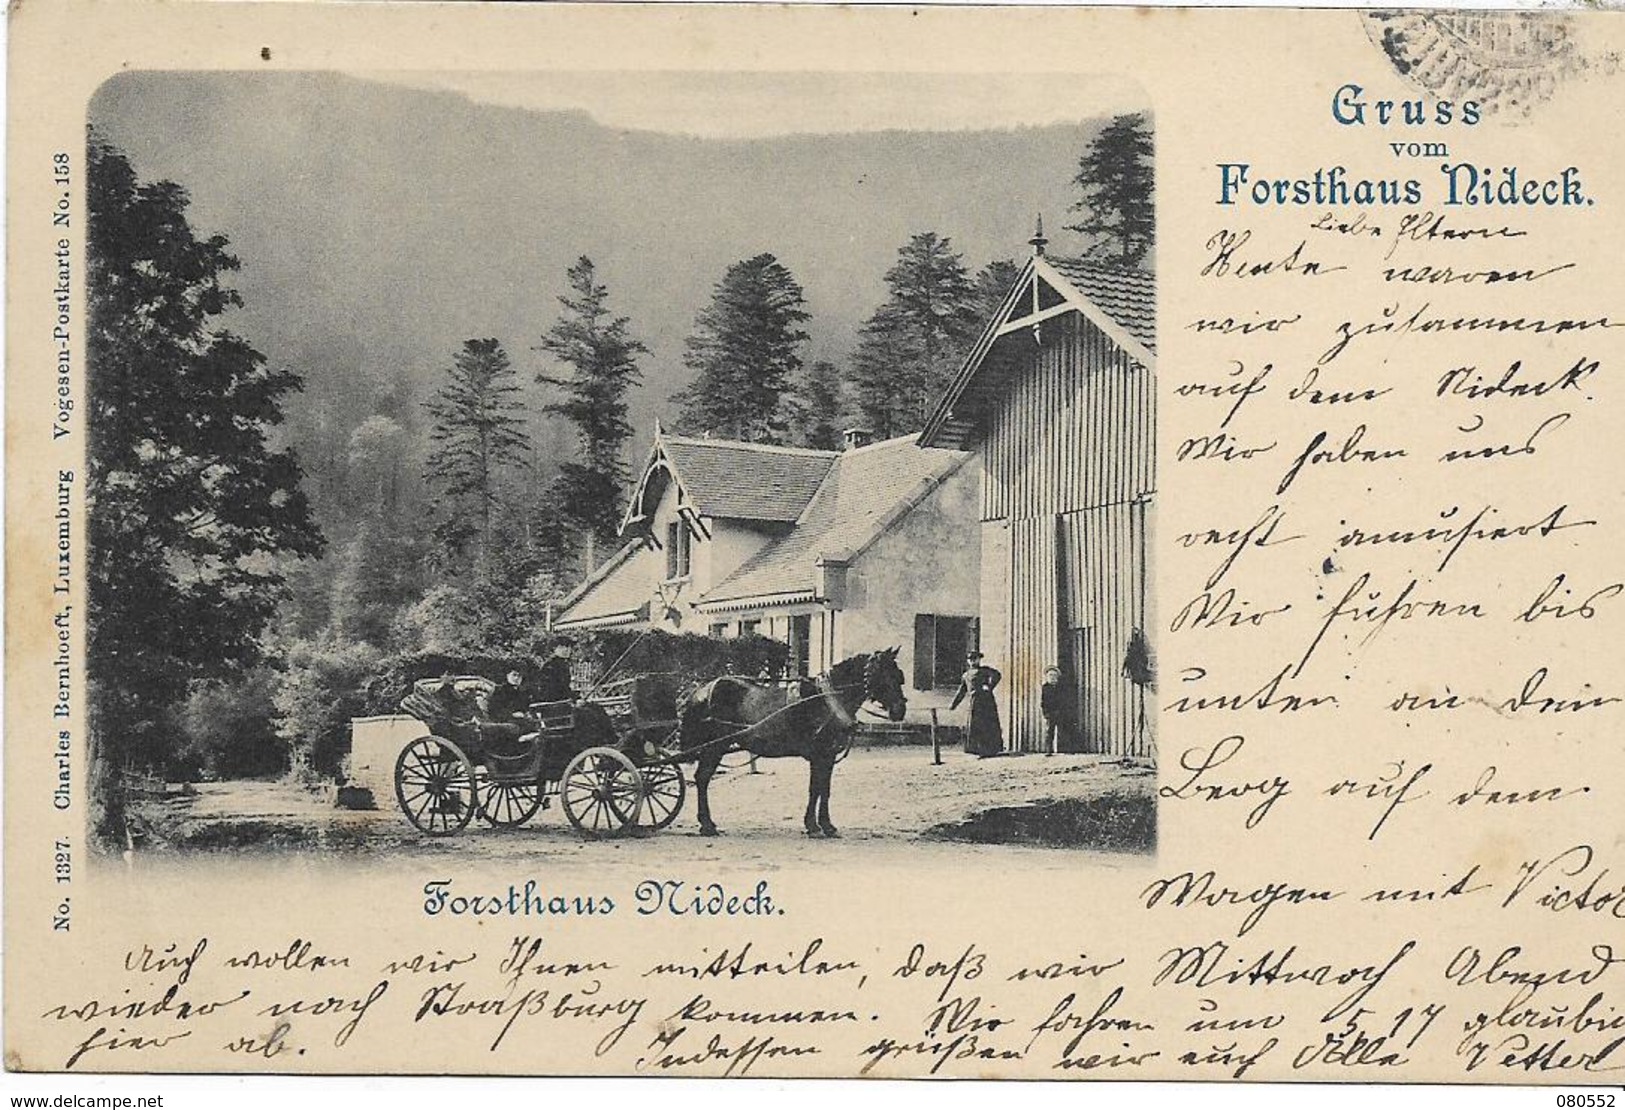 Gruss
vom
Forsthaus Nideck.
Liebe Eltern
Heute waren
wir zusammen
auf dem Nideck.
Wir haben uns
recht amusiert
Wir fuhren bis
unten an den
Berg auf dem
Wagen mit Victor
Forsthaus Nideck.
Auch wollen wir Ihnen mitteilen, daß wir Mittwoch Abend
wieder nach Straßburg kommen. Wir fahren um 5,17 glaubig
hier ab. Indessen grüßen wir euch Alle Vetter
No. 1327. Charles Bernhoeft, Luxemburg Vogesen-Postkarte No. 158
delcampe.net
080552